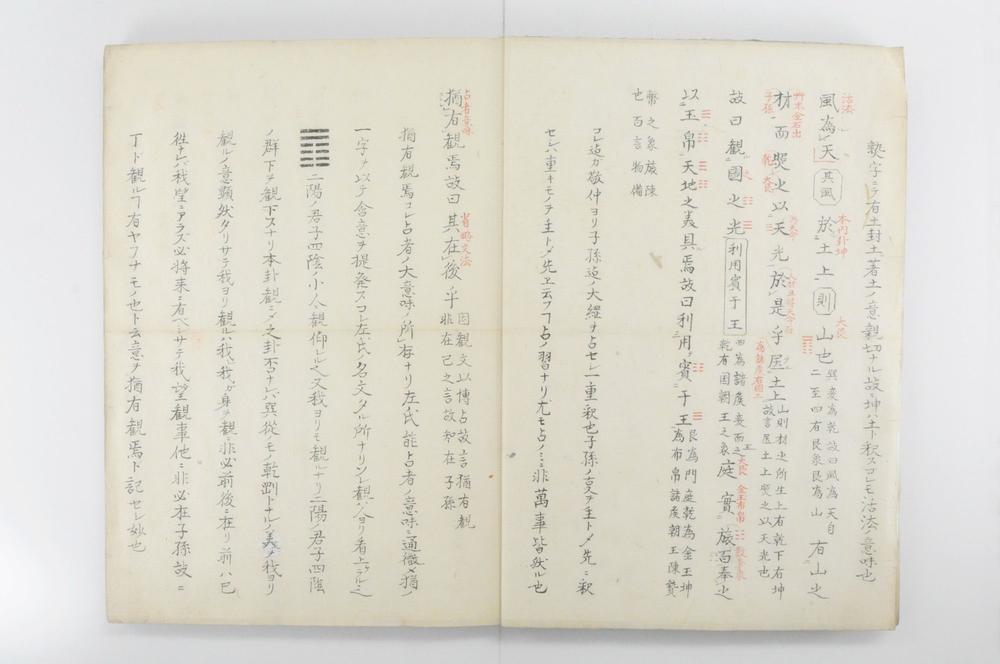 埶字ニテ有土封土著土ノ意親切ナル故ニ坤ハ土ト釈スコレモ活法ノ意味也
活法
風為天 其風 於土上 則 山也 巽変為乾故曰風為天自
二至四有艮象艮為山 有山之
本内卦坤
大艮
艸木金石出
材而煚之以天光於是乎居土上 山則材之所生上有乾下有坤
故言居土上煚之以天光也
故曰観國之光 利用賓于王 四為諸侯変而之
乾有国朝王之象 庭實旅百奉之
以玉帛天地之美具焉故曰利用賓于王 艮為門庭乾為金玉坤
為布帛諸侯朝王陳贄
幣之象旅陳
也百言物備
コレ迠ガ敬仲ヨリ子孫迠ノ大經ヲ占セシ一重釈也子孫ノ叓ヲ主トメ先ニ釈
セシハ重キモノヲ主トメ先ヱ云フ占ノ習ナリ尤モ占ノミニ非萬事皆然ル也
占者意味
猶有観焉故曰其在後乎 因観文以博占故言猶有観
非在己之言故知在子孫
省略文法
猶有観焉コレ占者ノ大意味ノ所存ナリ左氏能占者ノ意味ニ通徹メ猶ノ
一字ヲ以テ含意ヲ提発スコレ左氏ノ名文タル所ナリ
二陽ノ君子四陰ノ小人観仰シ之又我ヨリモ観ルナリ二陽ノ君子四陰
ノ群下ヲ観下スナリ本卦観ニメ之卦否ナレバ巽從モノ乾剛トナルノ義ヲ我ヨリ
観ルノ意顕然タリサテ我ヨリ観レバ我ト我ガ身ヲ観ニ非必前後ニ在リ前ハ已
徃ナレバ我望ニアラズ必將来ニ有ベシサテ我望観事他ニ非必在子孫故ニ
丁ト観ルヿ有ヤフナモノ也ト云意ヲ猶有観焉ト記セシ妙也